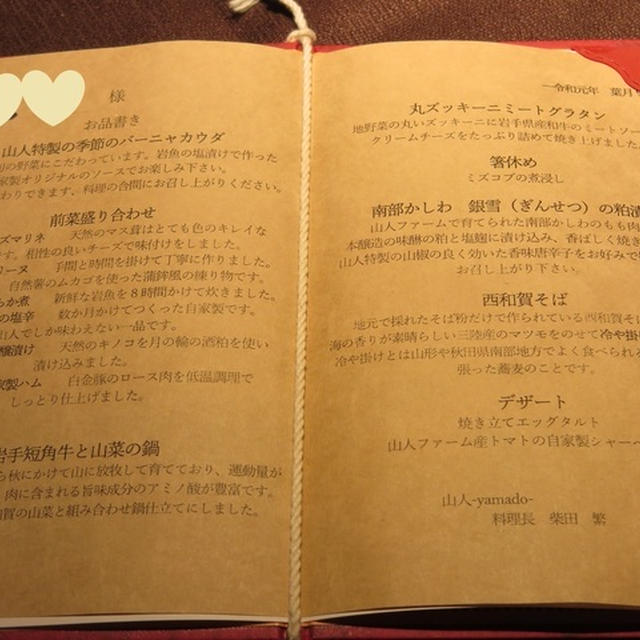 様
お品書き
山人特製の季節のバーニャカウダ
の野菜にこだわっています。岩魚の塩漬けで作った
家製オリジナルのソースでお楽しみ下さい。
わりできます、料理の合間にお召し上がりください。
前菜盛り合わせ
ズマリネ 天然のマス茸はとても色のキレイな
です。相性の良いチーズで味付けをしました。
リーヌ 手間と時間を掛けて丁寧に作りました。
自然薯のムカゴを使った蒲鉾風の練り物です。
らか煮 新鮮な岩魚を８時間かけて炊きました。
の塩辛 数か月かけてつくった自家製です。
山人でしか味わえない一品です。
醸漬け 天然のキノコを月の輪の酒粕を使い
漬け込みました。
家製ハム 白金豚のロース肉を低温調理で
しっとり仕上げました。
岩手短角牛と山菜の鍋
ら秋にかけて山に放牧して育てており、運動量が
肉に含まれる旨味成分のアミノ酸が豊富です。
賀の山菜と組み合わせ鍋仕立てにしました。
令和元年 葉月
丸ズッキーニミートグラタン
地野菜の丸いズッキーニに岩手県産和牛のミートソー
クリームチーズをたっぷり詰めて焼き上げました
箸休め
ミズコブの煮浸し
南部かしわ 銀雪（ぎんせつ）の粕漬
山人ファームで育てられた南部かしわのもも肉
本醸造の味醂の粕と塩麹に漬け込み、香ばしく焼き
山人特製の山椒の良く効いた香味唐辛子をお好みで
お召し上がり下さい。
西和賀そば
地元で採れたそば粉だけで作られている西和賀そば
海の香りが素晴らしい三陸産のマツモをのせて冷や掛け
冷や掛けとは山形や秋田県南部地方でよく食べられる
張った蕎麦のことです。
デザート
焼き立てエッグタルト
山人ファーム産トマトの自家製シャーベ
山人-yamado-
料理長 柴田 繁